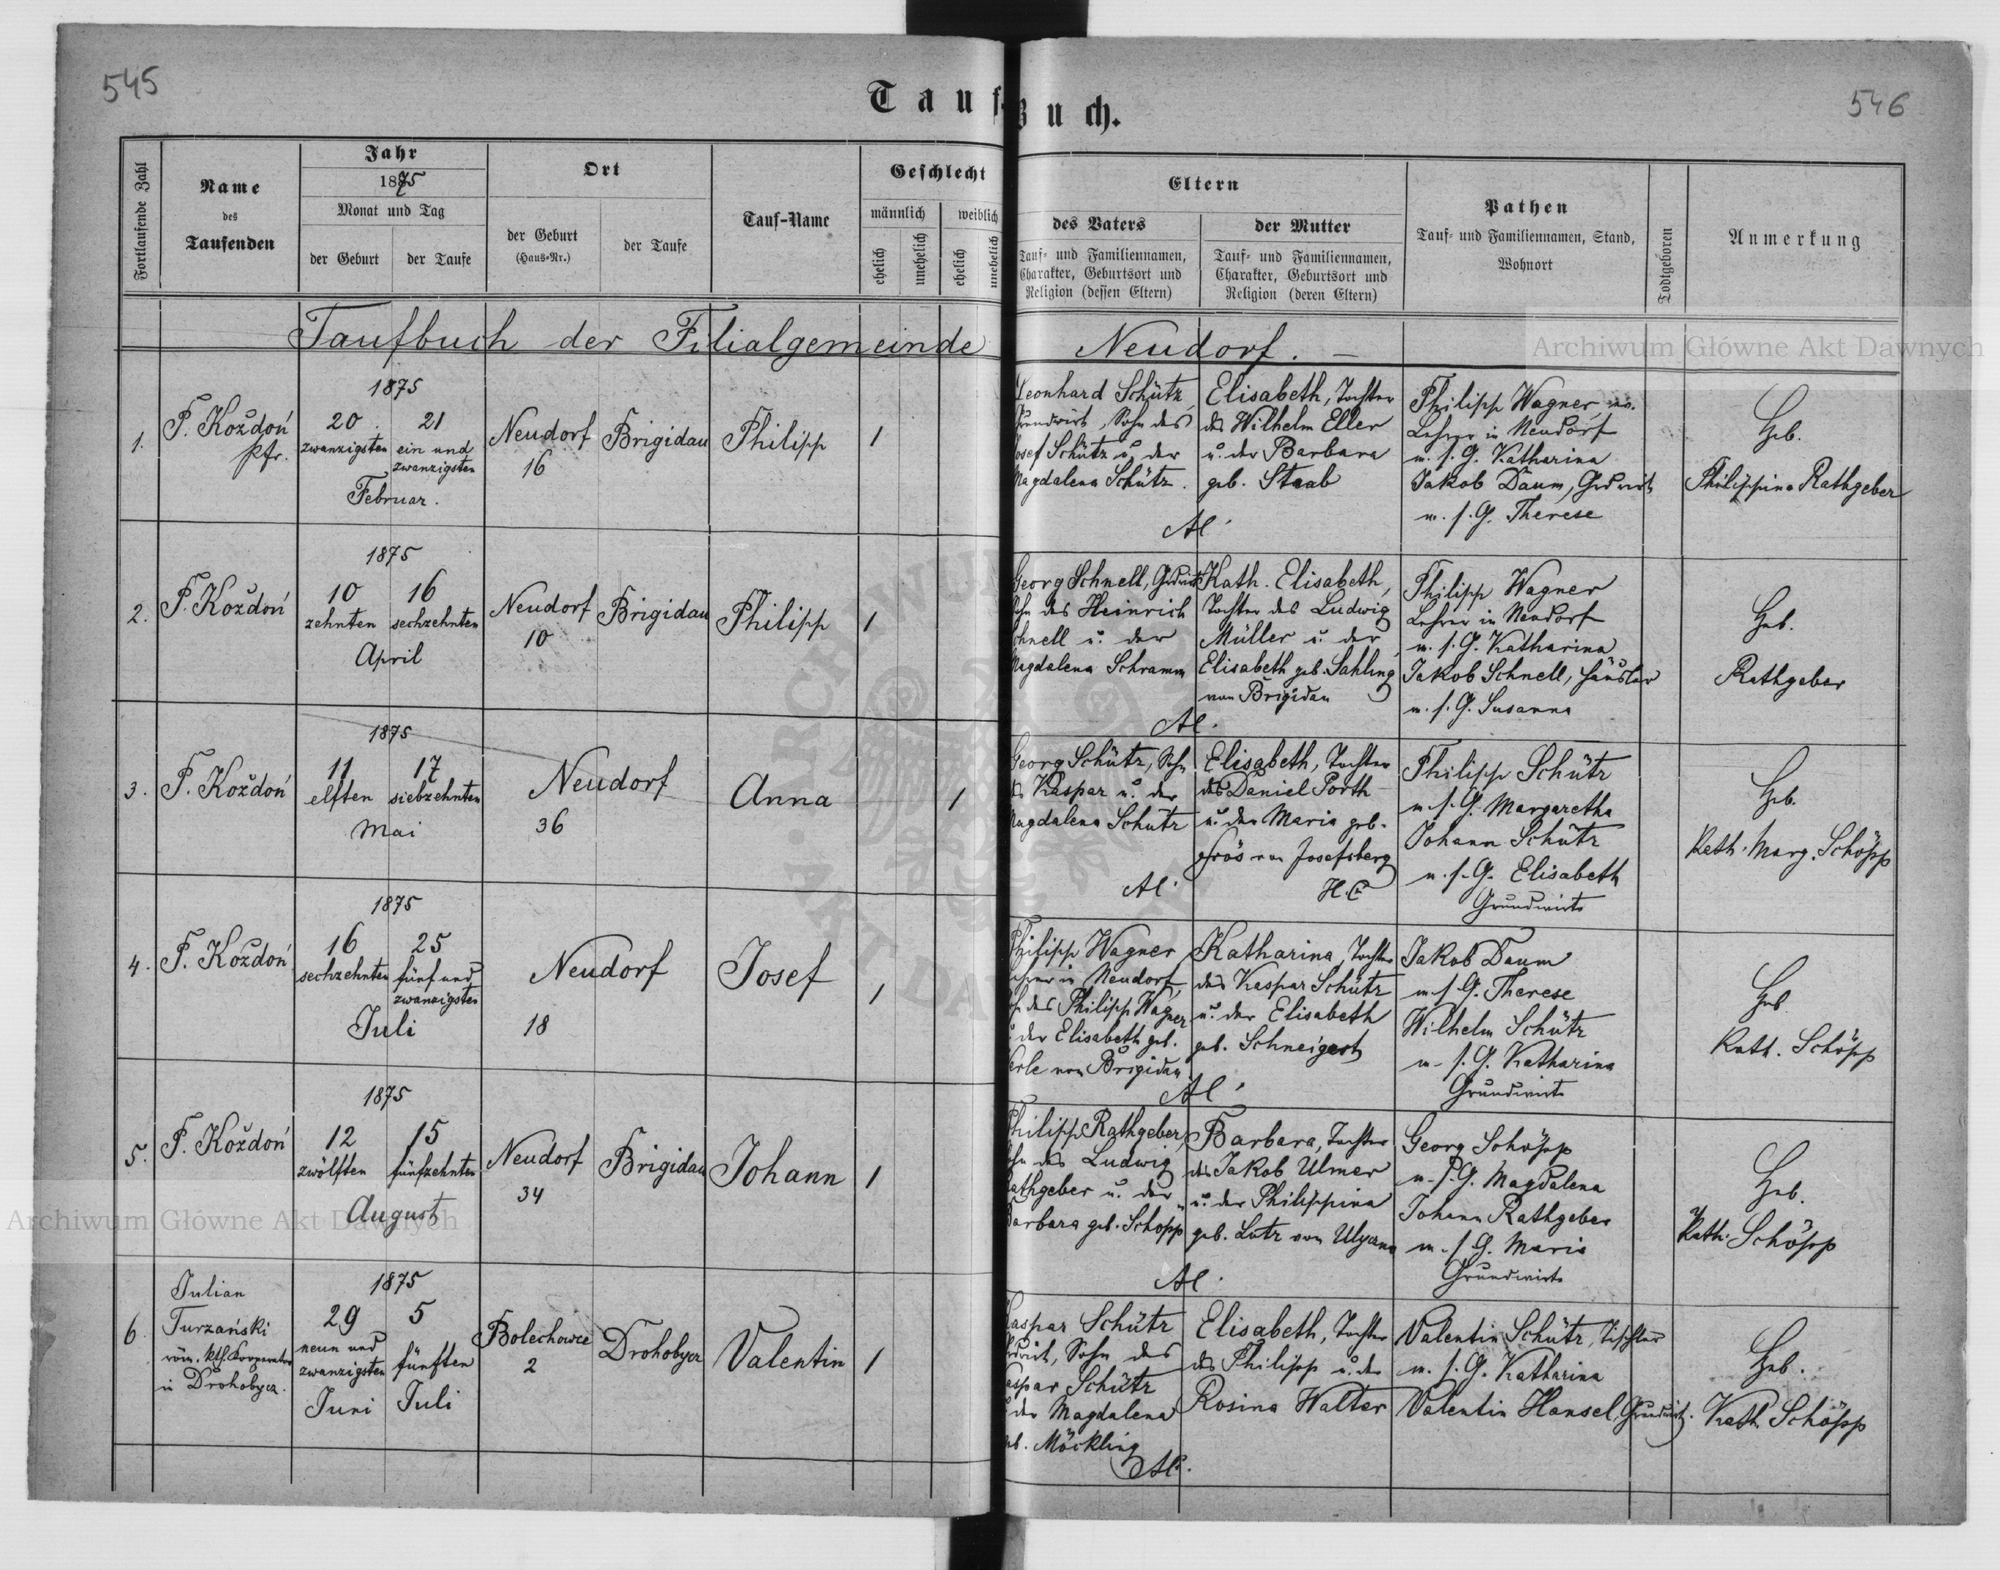 545
546
Taufbuch.
Fortlaufende Zahl
Name
des
Taufenden
Jahr
1875
Monat und Tag
der Geburt
der Taufe
Ort
der Geburt
(Haus-Nr.)
der Taufe
Tauf-Name
Geschlecht
männlich
weiblich
ehelich
unehelich
ehelich
unehelich
Eltern
des Vaters
Tauf- und Familiennamen,
Charakter, Geburtsort und
Religion (dessen Eltern)
der Mutter
Tauf- und Familiennamen,
Charakter, Geburtsort und
Religion (deren Eltern)
Pathen
Tauf- und Familiennamen, Stand,
Wohnort
Todtgeboren
Anmerkung
Taufbuch der Filialgemeinde Neudorf. —
1.
F. Koždoń
Pfr.
1875
20
zwanzigsten
21
ein und
zwanzigsten
Februar.
Neudorf
16
Brigidau
Philipp
1
Leonhard Schütz
Grundwirt, Sohn des
Josef Schütz u. der
Magdalena Schütz.
Al.
Elisabeth, Tochter
des Wilhelm Eller
u. der Barbara
geb. Staab
Philipp Wagner
Lehrer in Neudorf
m. s. G. Katharina
Jakob Daum, Grdwirt
m. s. G. Therese
Heb.
Philippina Rathgeber
2.
F. Koždoń
1875
10
zehnten
16
sechzehnten
April
Neudorf
10
Brigidau
Philipp
1
Georg Schnell, Grdwirt
Sohn des Heinrich
Schnell u. der
Magdalena Schramm
Al.
Kath. Elisabeth,
Tochter des Ludwig
Müller u. der
Elisabeth geb. Sahling
von Brigidau
Philipp Wagner
Lehrer in Neudorf
m. s. G. Katharina
Jakob Schnell, Häusler
m. s. G. Susanna
Heb.
Rathgeber
3.
F. Koždoń
1875
11
elften
17
siebzehnten
Mai
Neudorf
36
Anna
1
Georg Schütz, Sohn
des Kaspar u. der
Magdalena Schütz
Al.
Elisabeth, Tochter
des Daniel Porth
u. der Maria geb.
von Josefsberg
H.C
Philipp Schütz
m. s. G. Margaretha
Johann Schütz
m. s. G. Elisabeth
Grundwirte
Heb.
Kath. Marg. Schöpp
4.
F. Koždoń
1875
16
sechzehnten
25
fünf und
zwanzigsten
Juli
Neudorf
18
Josef
1
Philipp Wagner
Lehrer in Neudorf,
Sohn des Philipp Wagner
u. der Elisabeth geb.
von Brigidau
Al.
Katharina, Tochter
des Kaspar Schütz
u. der Elisabeth
geb. Schneigert
Jakob Daum
m. s. G. Therese
Wilhelm Schütz
m. s. G. Katharina
Grundwirte
Heb.
Kath. Schöpp
5.
F. Koždoń
1875
12
zwölften
15
fünfzehnten
August
Neudorf
34
Brigidau
Johann
1
Philipp Rathgeber,
Sohn des Ludwig
Rathgeber u. der
Barbara geb. Schöpp
Al.
Barbara, Tochter
des Jakob Ulmer
u. der Philippina
geb. Lutz von
Georg Schöpp
m. s. G. Magdalena
Johann Rathgeber
m. s. G. Maria
Grundwirte
Heb.
Kath. Schöpp
6.
Julian
Turzański
röm. kth. Kooperator
in Drohobycz.
1875
29
neun und
zwanzigsten
Juni
5
fünften
Juli
Bolechowce
2
Drohobycz
Valentin
1
Kaspar Schütz
Grdwirt, Sohn des
Kaspar Schütz
u. der Magdalena
geb. Möckling
Al.
Elisabeth, Tochter
des Philipp u. der
Rosina Walter
Valentin Schütz, Tischler
m. s. G. Katharina
Valentin Hansel, Grundwirt.
Heb.
Kath. Schöpp
Archiwum Główne Akt Dawnych
Archiwum Główne Akt Dawnych